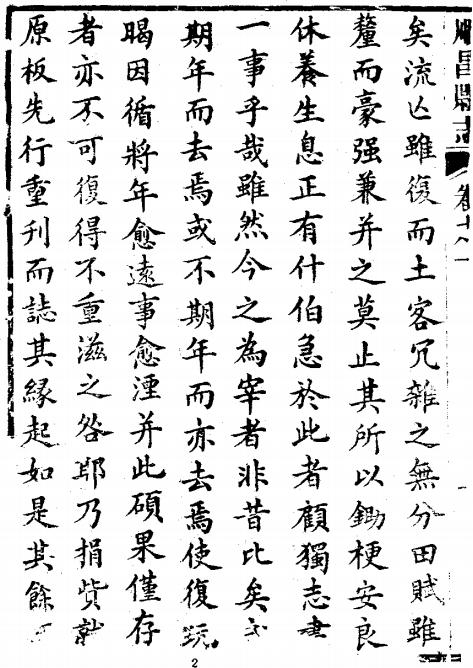 昌縣志
卷十
矣流亡雖復而土客冗雜之無分田賦雖
釐而豪强兼并之莫止其所以鋤梗安良
休養生息正有什伯急於此者顧獨志書
一事乎哉雖然今之為宰者非昔比矣
期年而去焉或不期年而亦去焉使復玩
暍因循將年愈遠事愈湮并此碩果僅存
者亦不可復得不重滋之咎耶乃捐貲就
原板先行重刊而誌其緣起如是其餘
2